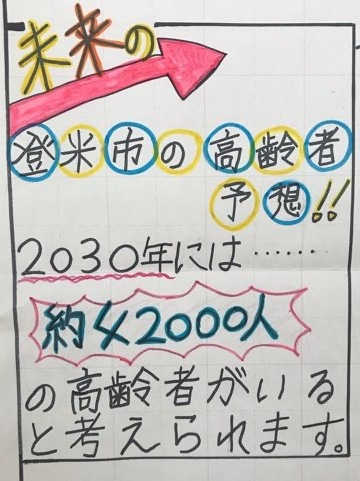 未来の
登米市の高齢者
予想!!
2030年には‥‥‥‥
約42000人
の高齢者がいる
と考えられます。